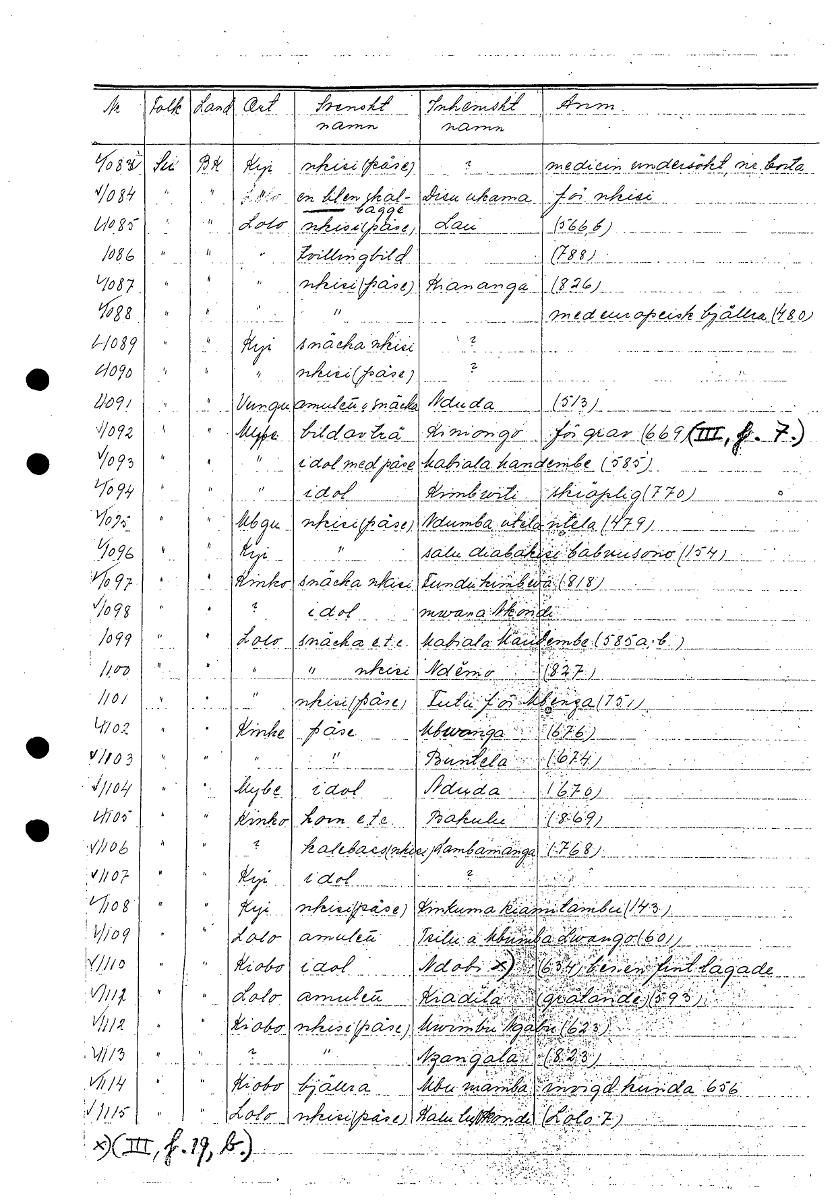 Nr Folk Land Ort Svenskt namn Inhemskt namn Anm.
1/083 Su BK Kyi nkisi (påse) ? medicin undersökt, ne, borta
1/084 " " Lolo en blen skal-bagge Disu ukama för nkisi
1/085 " " Lolo nkisi (påse) Lau (566,b)
1/086 " " " tvillingbild (788)
1/087 " " " nkisi (påse) Kiananga (826)
1/088 " " " " med europeisk bjällra (480)
1/089 " " Kyi snäcka nkisi ?
1/090 " " " nkisi (påse) ?
1/091 " " Vungu amulett o snäcka Nduda (513)
1/092 " " Mybe bild av trä Kimongo för grav (669) (III, f. 7.)
1/093 " " " idol med påse Mabiala Mandembe (585)
1/094 " " " idol Kimbwiti skiöplig (770)
1/095 " " Mbgu nkisi (påse) Ndumba utela ntela (479)
1/096 " " Kyi " salu diabakisi babunsono (154)
1/097 " " Kinko snäcka nkisi Fundu kimbwa (818)
1/098 " " ? idol mwana Nkondi
1/099 " " Lolo snäcka etc. Mabiala Mandembe (585 a.b.)
1/100 " " " " nkisi Ndèmo (827)
1/101 " " " nkisi (påse) Futu för Mbenza (751)
1/102 " " Kinke påse Mbwanga (676)
1/103 " " " " Buntela (674)
1/104 " " Mybe idol Nduda (670)
1/105 " " Kinko horn etc. Bakulu (869)
1/106 " " ? kalebass (nkisi) Lambamanga (768)
1/107 " " Kyi idol ?
1/108 " " Kyi nkisi (påse) Kinkuma kiamutambu (143)
1/109 " " Lolo amulett Tsilu a Mbumba Lwango (601)
1/110 " " Kiobo idol Ndobi x) (634) ben en fint lagade
1/111 " " Lolo amulett Kiadila (gråtande) (593)
1/112 " " Kiobo nkisi (påse) Mwimbu Ngabu (623)
1/113 " " ? " Nzangala (823)
1/114 " " Kiobo bjällra Mbu mamba invigd kunda 656
1/115 " " Lolo nkisi (påse) Nkondi (Lolo 7)
x) (III, f. 19, b.)